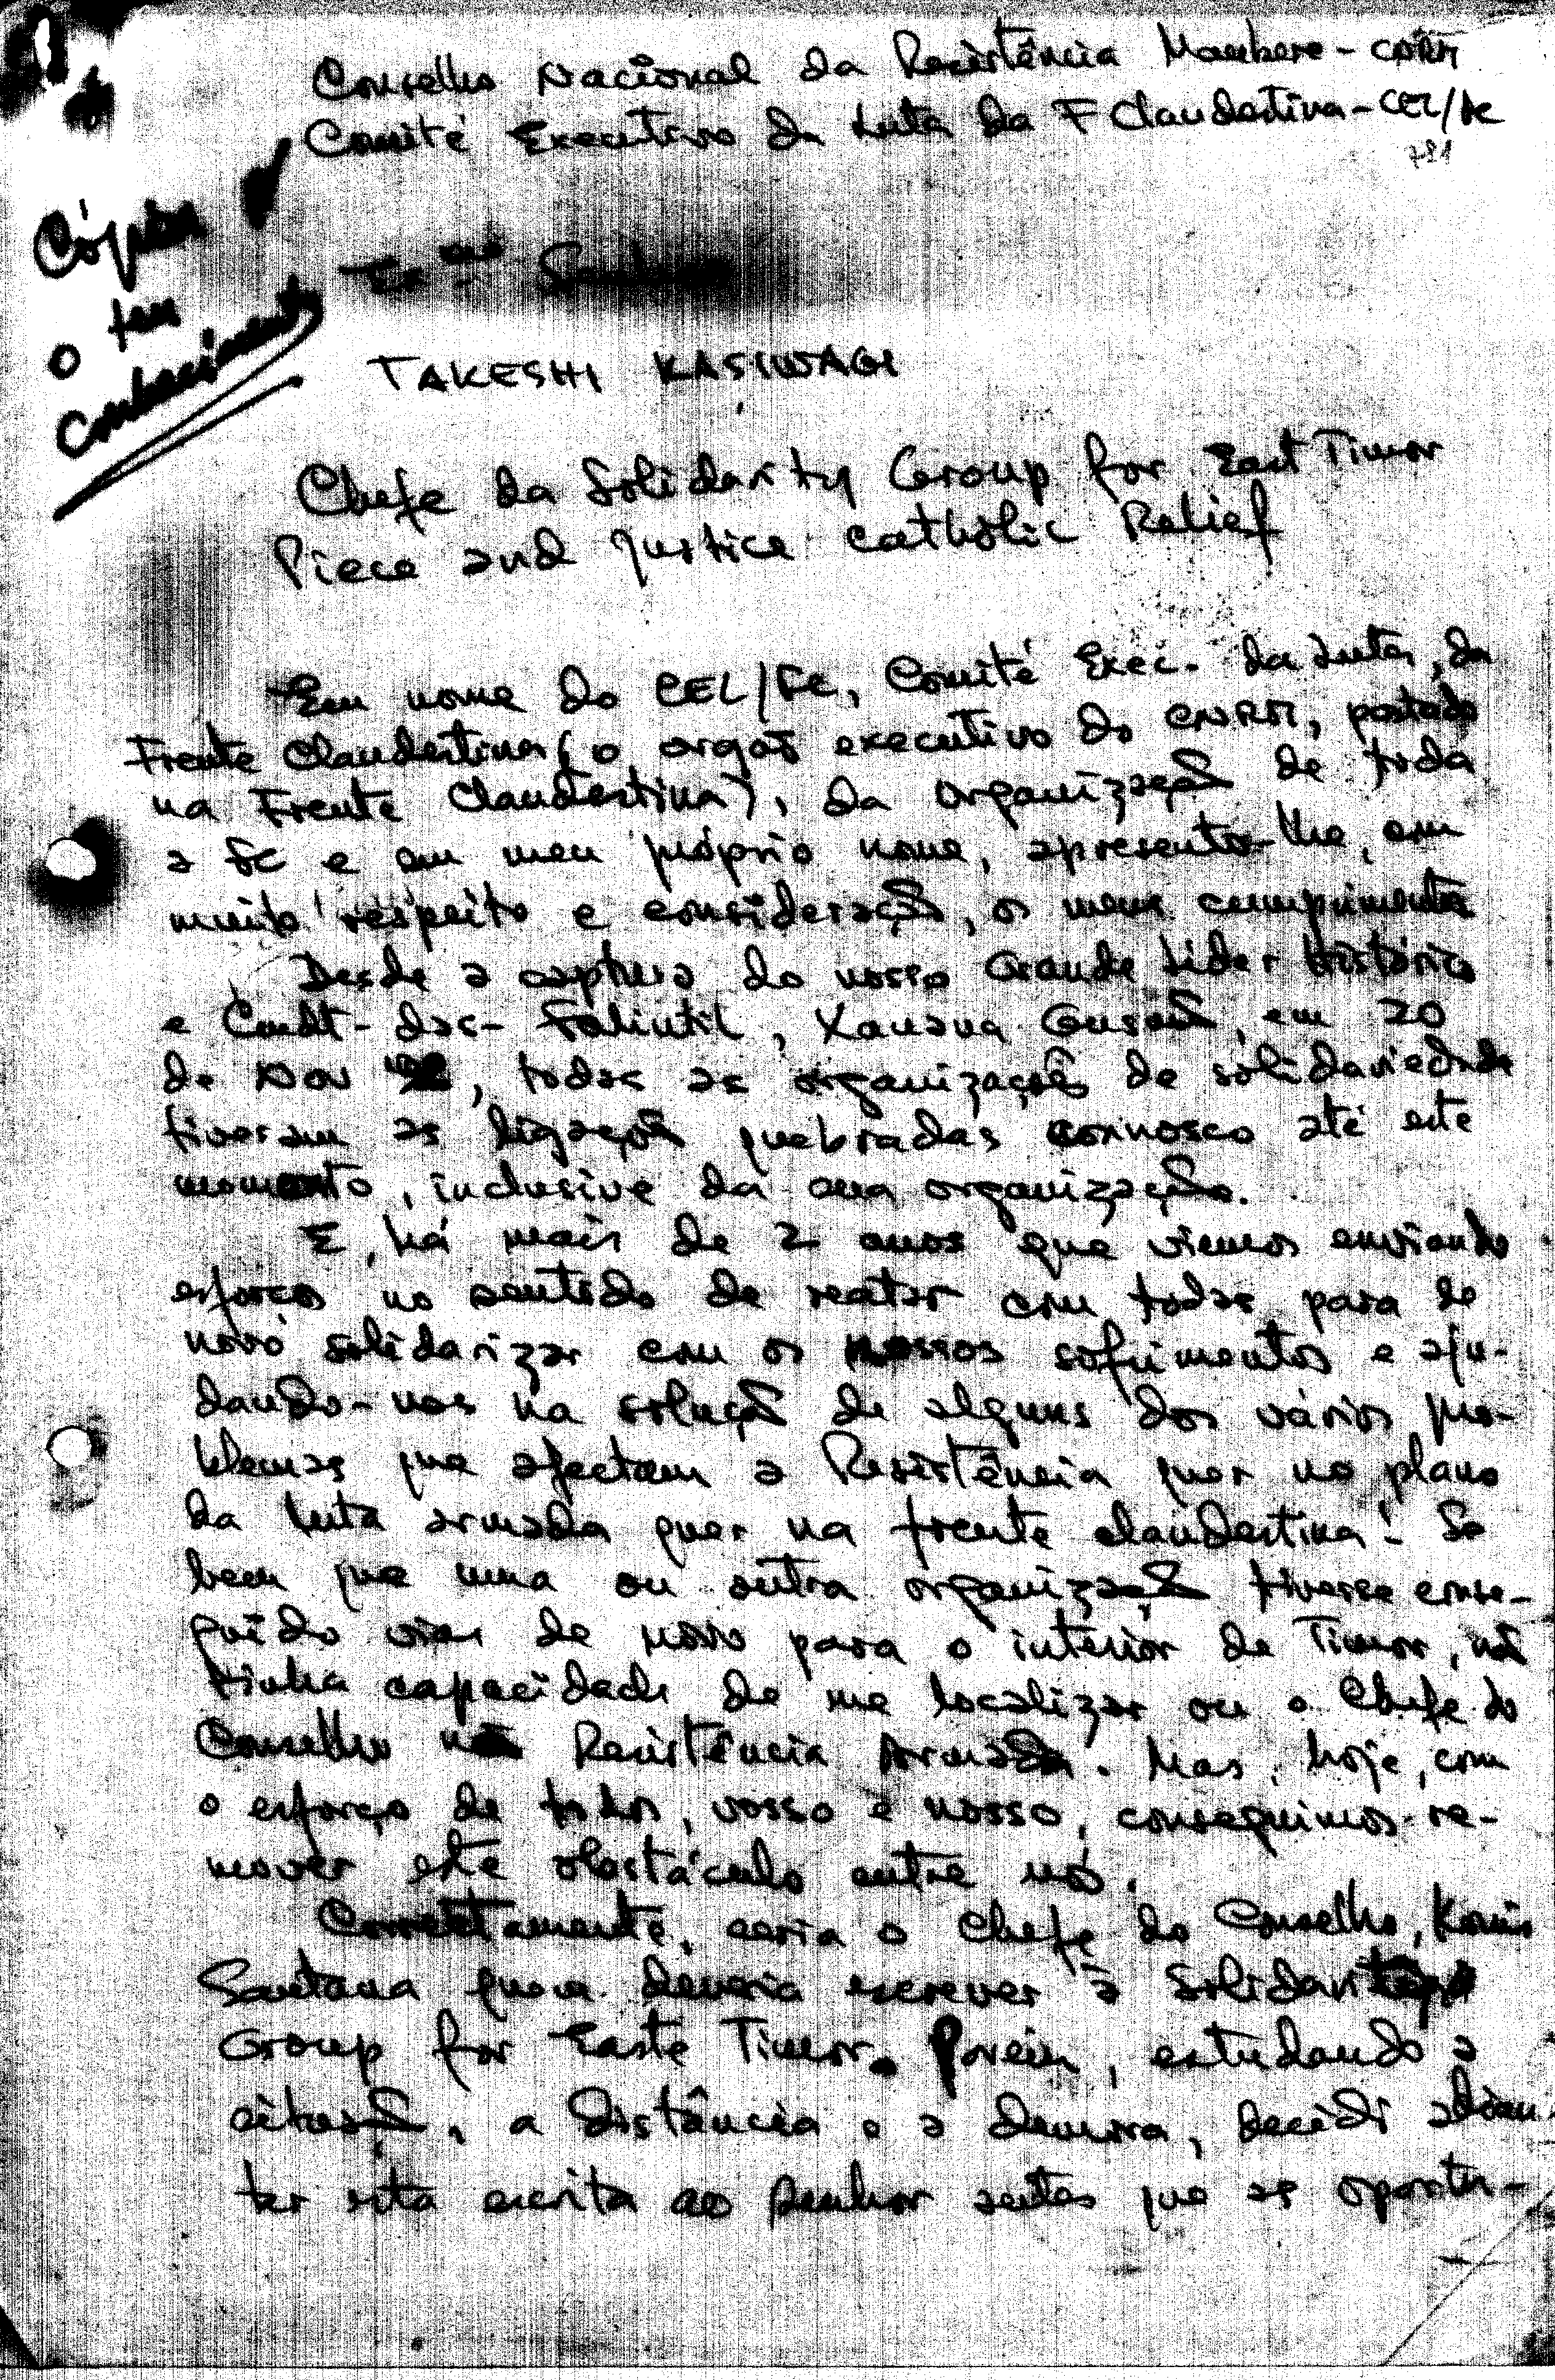 Conselho Nacional da Resistência Maubere - CNRM
Comité Executivo da Luta da F Clandestina - CEL/FC
Cópia p/
o teu
conhecimento
Exmo Senhor
TAKESHI KASIWAGI
Chefe da Solidarity Group for East Timor
Piece and Justice Catholic Relief
Em nome do CEL/FC, Comité Exec. da Luta, da
Frente Clandestina (o orgão executivo do CNRM, postado
na Frente Clandestina), da organização de toda
a FC e em meu próprio nome, apresento-lhe, com
muito respeito e consideração, os meus cumprimentos
Desde a captura do nosso Grande Líder Histórico
e Cmdt-das-Falintil, Xanana Gusmão, em 20
de Nov 92, todas as organizações de solidariedade
tiveram as ligações quebradas connosco até este
momento, inclusive da sua organização.
E, há mais de 2 anos que viemos enviando
esforços no sentido de reatar com todas para de
novo solidarizar com os nossos sofrimentos e aju-
dando-nos na solução de alguns dos vários pro-
blemas que afectam a Resistência quer no plano
da luta armada quer na frente clandestina! Se
bem que uma ou outra organização tivesse conse-
guido vias de novo para o interior de Timor, não
tinha capacidade de me localizar ou o Chefe do
Conselho na Resistência Armada. Mas, hoje, com
o esforço de todos, vosso e nosso, conseguimos re-
mover este obstáculo entre nós.
Correctamente, seria o Chefe do Conselho, Konis
Santana quem deveria escrever à Solidarity
Group for Easte Timor. Porém, estudando a
situação, a distância e a demora, decidi adian-
tar esta escrita ao Senhor antes que as oportu-